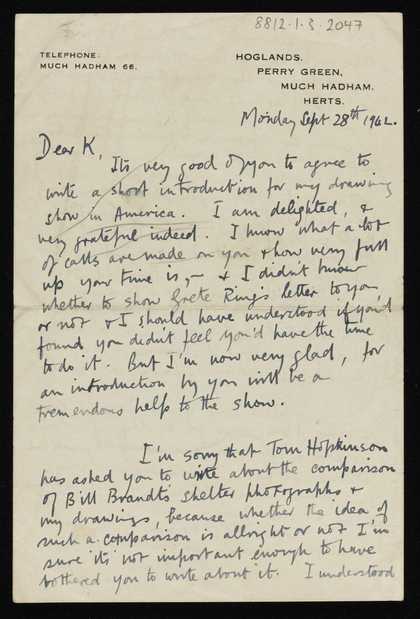 8812.1.3.2047
TELEPHONE:
MUCH HADHAM 66.
HOGLANDS.
PERRY GREEN,
MUCH HADHAM.
HERTS.
Monday Sept 28th 1942.
Dear K,
Its very good of you to agree to
write a short introduction for my drawing
show in America. I am delighted, &
very grateful indeed. I know what a lot
of calls are made on you & how very full
up your time is, – & I didn't know
whether to show Grete Ring's letter to you
or not & I should have understood if you'd
found you didn't feel you'd have the time
to do it. But I'm now very glad, for
an introduction by you will be a
tremendous help to the show.
I'm sorry that Tom Hopkinson
has asked you to write about the comparison
of Bill Brandt's shelter photographs &
my drawings, because whether the idea of
such a comparison is allright or not I'm
sure its not important enough to have
bothered you to write about it. I understood